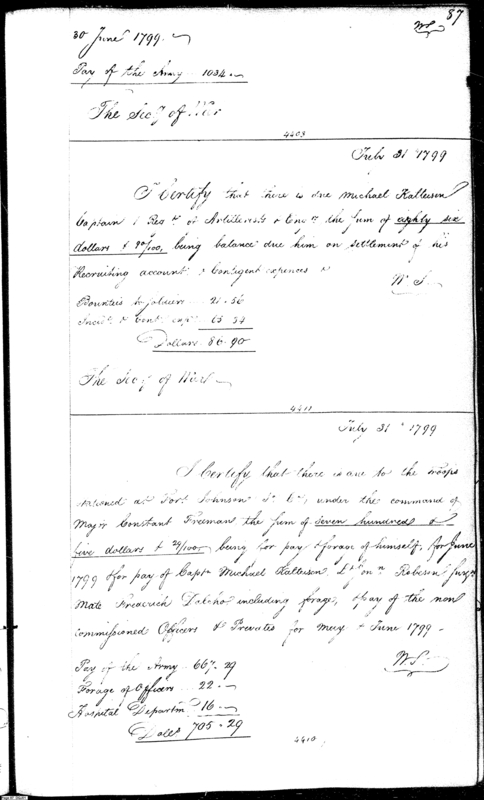 87
WS
30 June 1799.
Pay of the Army 1034.
The Secy of War
4403
July 31 1799
I Certify that there is due Michael Kalteisen
Captain 1 Regt of Artillerists & Engrs the sum of eighty six
dollars & 90/100, being balance due him on settlement of his
Recruiting account & Contigent expences &
W. S.
Bounties to soldiers 21.56
Incidl & Cont. exps 65.34
Dollars 86.90
The Secy of War
4411
July 31st 1799
I Certify that there is due to the troops
stationed at Fort Johnson So Ca, under the command of
Major Constant Freeman the sum of seven hundred &
five dollars & 29/100 being for pay & forage of himself, for June
1799 & for pay of Captn Michael Kalteisen Lt Robeson surgns
Mate Frederick Dalcho including forage, & pay of the non
commissioned Officers & Privates for May & June 1799 -
WS
Pay of the Army 667.29
Forage of Officers 22.
Hospital Departmt 16
Dolls 705.29
4410